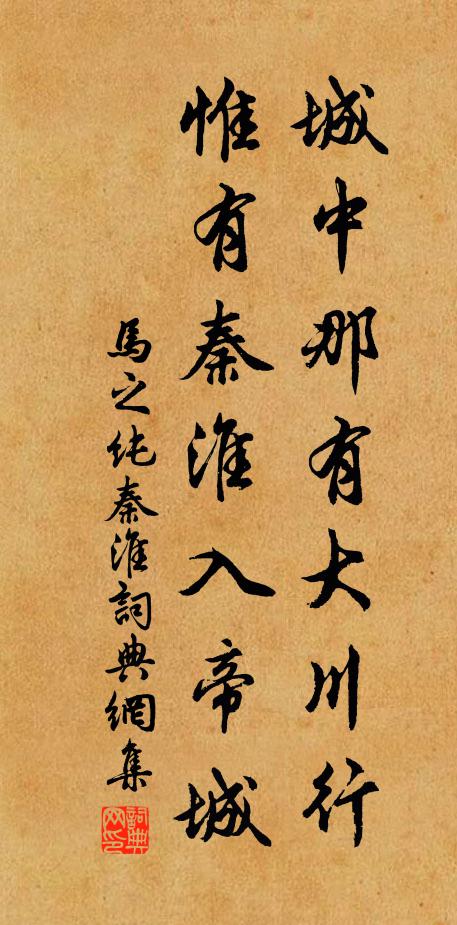 城中那有大川行
惟有秦淮入帝城
馬之純秦淮詞典網集
詞典網印